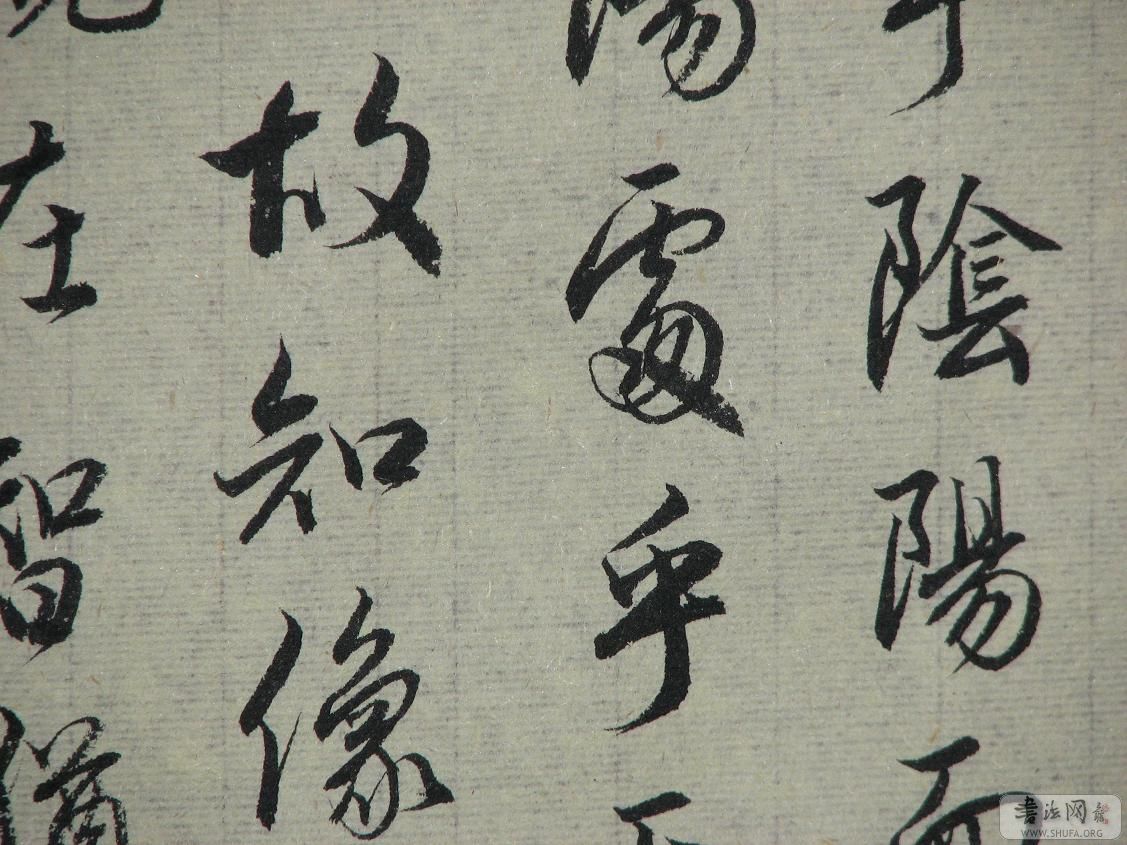 乎陰陽而
陽處乎
故知像
在智猶
書法网
WWW.SHUFA.ORG